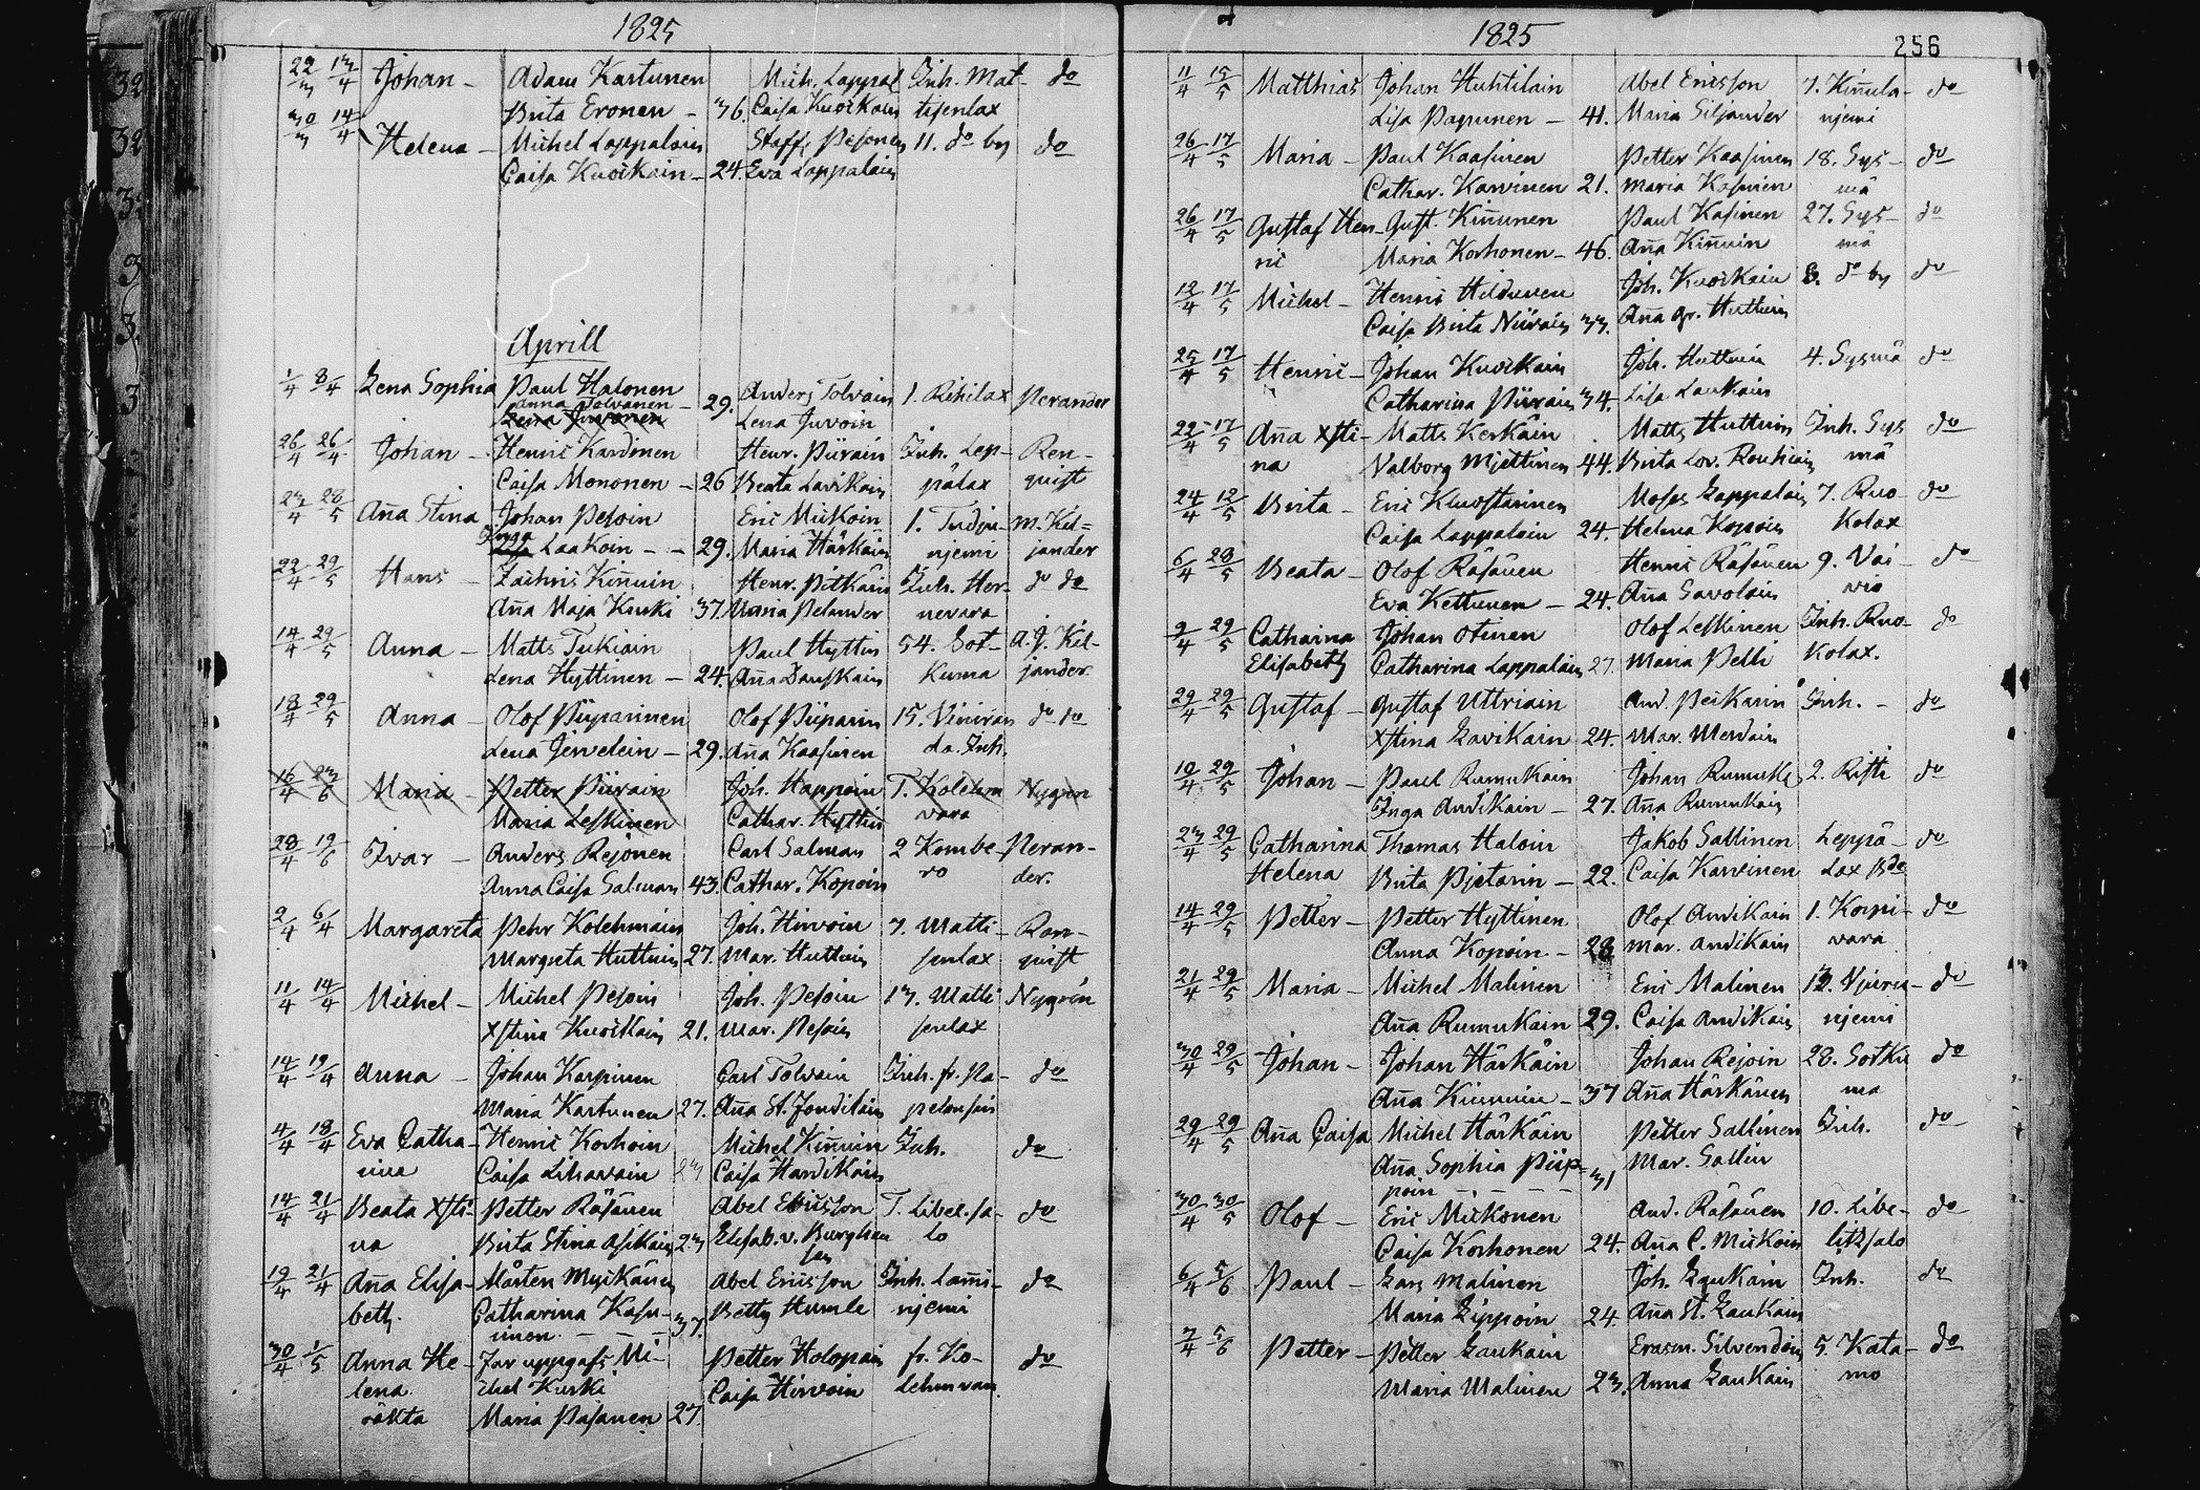 1825
22/3 13/4 Johan - Adam Kartunen Mich. Lappal Inh. Mat- do
Brita Eronen - 36. Caisa Kuoikain tisenlax
30/3 14/4 Helena - Michel Lappalain Staff. Pesonen 11. do by do
Caisa Kuoikain - 24. Eva Lappalain
Aprill
1/4 8/4 Lena Sophia Paul Halonen Anders Tolvain 1. Rihilax Perander
Anna Tolvanen - 29. Lena Juvoin
Lena Juvonen
26/4 26/4 Johan - Henric Kardinen Henr. Piirain Inh. Lep- Ren-
Caisa Mononen - 26 Beata Lavikain pälax quist
23/4 28/5 Aña Stina Johan Pesoin Eric Mickoin 1. m. Kil=
Inga Laakoin - - 29. Maria Härkäin njemi jander
22/4 29/5 Hans - Zachris Kiñuin Henr. Pitkäin Inh. Her- do do
Aña Maja Kurki 37. Maria Pelander nevara
14/4 29/5 Anna - Matts Tukiain Paul Hyttin 54. Sot- A.J. Kil-
Lena Hyttinen - 24. Aña Danskain kuma jander.
18/4 29/5 Anna - Olof Piiparinen Olof Piiparin 15. Viniran do do
Lena Jervelein - 29. Aña Kaasinen da. Inh.
16/4 23/6 Maria - Petter Piirain Joh. Happoin T. Kolehm Nygren
Maria Leskinen Cathar. Hyttin vara
28/4 19/6 Ivar - Anders Rejonen Carl Salman 2 Kombe- Peran-
Anna Caisa Salman 43. Cathar. Kopoin ro der.
2/4 6/4 Margareta Pehr Kolehmain Joh. Hirvoin 7. Matti- Ran-
Margreta Huttuin 27. Mar. Huttuin senlax quist
11/4 14/4 Michel - Michel Pesoin Joh. Pesoin 13. Matti Nygrén
Xstina Kuoikain 21. Mar. Pesoin senlax
14/4 19/4 Anna - Johan Karpinen Carl Tolvain Inh. fr. Pa- do
Maria Kartunen 27. Aña St. pelonsari
4/4 18/4 Eva Catha- Henric Korhoin Michel Kiñuin Inh. do
rina Caisa Lihavain 23 Caisa Handikain
14/4 21/4 Beata Xsti- Petter Räsänen Abel Ericsson T. Libel.sa- do
na Brita Stina Asikain 23 Elisab. v. Burghau lo
sen
19/4 21/4 Aña Elisa- Mårten Myikänen Abel Ericsson Inh. Lami- do
beth. Catharina Kasu- Betty Humle njemi
inen. - - - 37.
30/4 1/5 Anna He- Far uppgafs Mi- Petter Holopain fr. Ko- do
lena. chel Kurki Caisa Hirvoin lehmvara
oäkta Maria Pasanen 27.
1825 256
11/4 15/5 Matthias Johan Huhtilain Abel Ericsson 7. Kiñula- do
Lisa Papunen - 41. Maria Siljander njemi
26/4 17/5 Maria - Paul Kaasinen Petter Kaasinen 18. Sys- do
Cathar. Karvinen 21. Maria Kasinen mä
26/4 17/5 Gustaf Hen- Gust. Kiñunen Paul Kasinen 27. Sys- do
ric Maria Korhonen - 46. Aña Kiñuin mä
12/4 17/5 Michel - Henric Hildunen Joh. Kuoikain 8. do by do
Caisa Brita Niirain 33. Aña gr. Huttuin
25/4 17/5 Henric - Johan Kuoikain Joh. Huttuin 4. Sysmä do
Catharina Piirain 34. Lisa Laukain
22/4 17/5 Aña Xsti- Matts Kerkäin Matts Huttuin Inh. Sys do
na Valborg Mjettinen 44. Brita Lov. Rouhiain mä
24/4 12/5 Brita - Eric Kuostarinen Moses Lappalain 7. Ruo- do
Caisa Lappalain 24. Helena Kopoin kolax
6/4 28/5 Beata - Olof Räsänen Henric Räsänen 9. Vai- do
Eva Kettunen - 24. Aña Savolain vio
9/4 29/5 Catharina Johan Otinen Olof Leskinen Inh. Ruo- do
Elisabeth Catharina Lappalain 27. Maria Pelli kolax.
29/4 29/5 Gustaf - Gustaf Uttriain And. Peikarin Inh. - do
Xstina Lavikain 24. Mar.
10/4 29/5 Johan - Paul Rumukain Johan Rumuk 2. Risti do
Inga Andikain - 27. Aña Rumukain
23/4 29/5 Catharina Thomas Haloin Jakob Sallinen Leppä- do
Helena Brita Pjetarin - 22. Caisa Karvinen lax
14/4 29/5 Petter - Petter Hyttinen Olof Andikain 1. Korpi- do
Anna Kopoin - 28 Mar. Andikain vara
21/4 29/5 Maria - Michel Malinen Eric Malinen 12. Vjuru- do
Aña Rumukain 29. Caisa Andikain njemi
30/4 29/5 Johan - Johan Härkäin Johan Rejoin 28. Sotku do
Aña Kinnuin - 37 Aña Härkänen ma
29/4 29/5 Aña Caisa Michel Härkäin Petter Sallinen Inh. do
Aña Sophia Piip= 31 Mar. Sallin
poin - - - -
30/4 30/5 Olof - Eric Mickonen And. Räsänen 10. Libe- do
Caisa Korhonen 24. Aña C. Mickoin litzsalo
6/4 5/6 Paul - Lars Malinen Joh. Laukain Inh. do
Maria Lippoin 24. Aña St. Laukain
7/4 5/6 Petter - Petter Laukain Erasm. Silvendoin 5. Kata- do
Maria Malinen 23. Anna Laukain mo